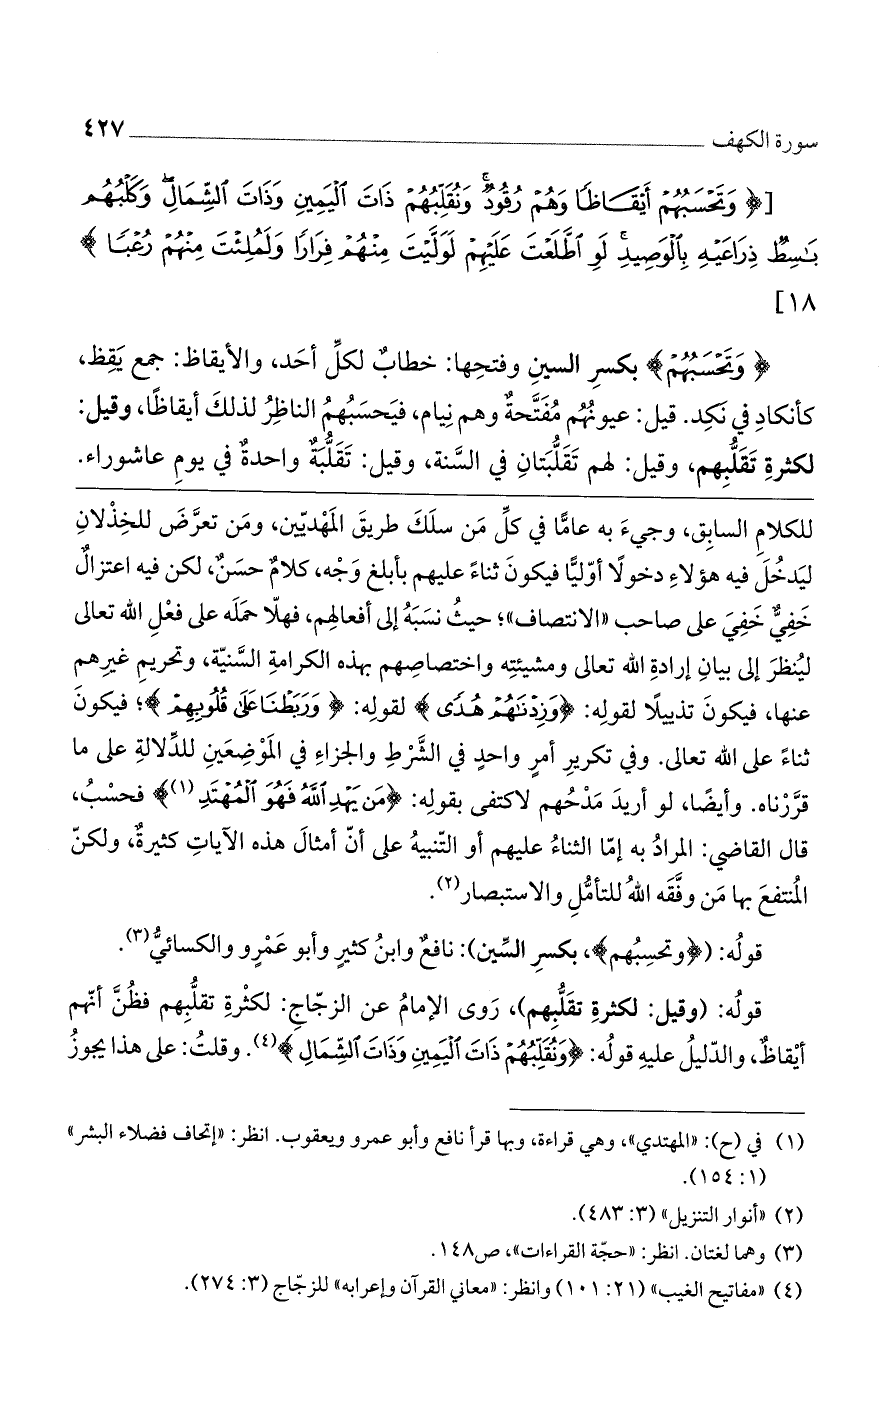 سورة الكهف ٤٢٧
[﴿ وَتَحْسَبُهُمْ أَيْقَاظًا وَهُمْ رُقُودٌ ۚ وَنُقَلِّبُهُمْ ذَاتَ الْيَمِينِ وَذَاتَ الشِّمَالِ ۖ وَكَلْبُهُم
بَاسِطٌ ذِرَاعَيْهِ بِالْوَصِيدِ ۚ لَوِ اطَّلَعْتَ عَلَيْهِمْ لَوَلَّيْتَ مِنْهُمْ فِرَارًا وَلَمُلِئْتَ مِنْهُمْ رُعْبًا ﴾
١٨]
﴿ وَتَحْسَبُهُمْ﴾ بكسرِ السينِ وفتحِها: خطابٌ لكلِّ أحَد، والأيقاظ: جمع يَقِظ،
كأنكادٍ في نَكِد. قيل: عيونُهُم مُفَتَّحةٌ وهم نِيام، فيَحسَبُهُمُ الناظِرُ لذلكَ أيقاظًا، وقيل:
لكثرةِ تَقَلُّبِهم، وقيل: لهم تَقَلُّبَتانِ في السَّنة، وقيل: تَقَلُّبَةٌ واحدةٌ في يومِ عاشوراء.
للكلامِ السابِق، وجيءَ به عامًّا في كلِّ مَن سلَكَ طريقَ المَهْديّين، ومَن تعرَّضَ للخِذْلانِ
ليَدخُلَ فيه هؤلاءِ دخولًا أوّليًّا فيكونَ ثناءً عليهم بأبلغِ وَجْه، كلامٌ حسَنٌ، لكن فيه اعتزالٌ
خَفِيٌّ خَفِيَ على صاحب «الانتصاف»؛ حيثُ نسَبَهُ إلى أفعالِهم، فهلّا حمَلَه على فعْلِ الله تعالى
ليُنظَرَ إلى بيانِ إرادةِ الله تعالى ومشيئتِه واختصاصِهم بهذه الكرامةِ السَّنيّة، وتحريمِ غيرِهم
عنها، فيكونَ تذييلًا لقولِه: ﴿وَزِدْنَاهُمْ هُدًى ﴾ لقولِه: ﴿ وَرَبَطْنَا عَلَى قُلُوبِهِمْ ﴾؛ فيكونَ
ثناءً على الله تعالى. وفي تكريرِ أمرٍ واحدٍ في الشَّرْطِ والجزاءِ في المَوْضِعَينِ للدِّلالةِ على ما
قرَّرْناه. وأيضًا، لو أريدَ مَدْحُهم لاكتفى بقولِه: ﴿مَن يَهْدِ اللَّهُ فَهُوَ الْمُهْتَدِ (١)﴾ فحسْبُ،
قال القاضي: المرادُ به إمّا الثناءُ عليهم أو التّنبيهُ على أنّ أمثالَ هذه الآياتِ كثيرةٌ، ولكنّ
المُنتفعَ بها مَن وفَّقَه اللهُ للتأمُّلِ والاستبصار(٢).
قولُه: (﴿وتحسِبُهم﴾، بكسرِ السِّين): نافعٌ وابنُ كثيرٍ وأبو عَمْرٍو والكسائيُّ(٣).
قولُه: (وقيل: لكثرةِ تقَلُّبِهم)، رَوى الإمامُ عن الزجّاجِ: لكثْرةِ تقلُّبِهم فظُنَّ أنّهم
أيْقاظٌ، والدّليلُ عليهِ قولُه: ﴿وَنُقَلِّبُهُمْ ذَاتَ الْيَمِينِ وَذَاتَ الشِّمَالِ ﴾(٤). وقلتُ: على هذا يجوزُ
(١) في (ح): «المهتدي»، وهي قراءة، وبها قرأ نافع وأبو عمرو ويعقوب. انظر: «إتحاف فضلاء البشر»
(١: ١٥٤).
(٢) «أنوار التنزيل» (٣: ٤٨٣).
(٣) وهما لغتان. انظر: «حجّة القراءات»، ص١٤٨.
(٤) «مفاتيح الغيب» (٢١: ١٠١) وانظر: «معاني القرآن وإعرابه» للزجّاج (٣: ٢٧٤).